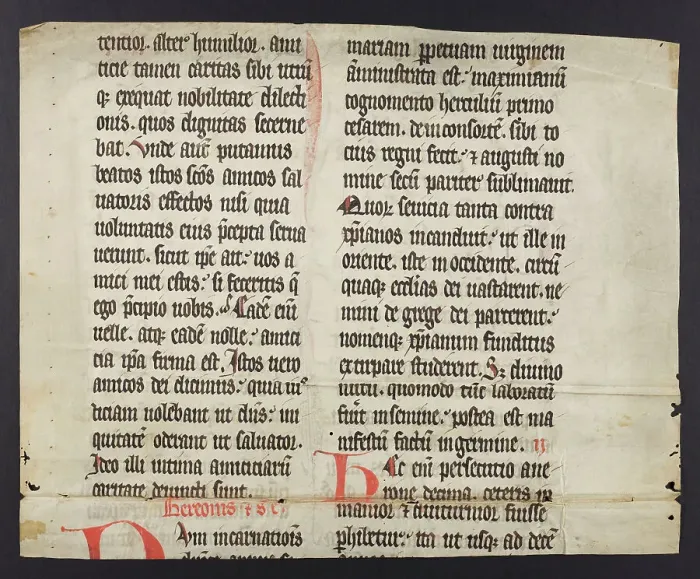 tentior. alter humilior. ami
ticie tamen caritas sibi utrūq
q; exequat nobilitate dilecti
onis. quos dignitas secerne
bat. Unde autē putamus
beatos istos scōs amicos sal
uatoris effectos nisi quia
voluntatis eius p̄cepta serua
uerunt. sicut ip̄e ait. uos a
mici mei estis. si feceritis q̄
ego p̄cipio uobis. Eadē eni
uelle. atq; eadē nolle. amici
cia ip̄a firma est. Istos uero
amicos dei dicimus. quia iusticiam
uolebant ut dn̄s. ini
quitatē oderant ut saluator.
Ideo illi intima amiciciarū
caritate deuincti sunt.
D
Vm incarnationis
mariam ꝑpetuam uirginem
amministrata est. maximianū
cognomento herculiū primo
cesarem. dein consortē. sibi to
cius regni fecit. ⁊ augusti no
mine secū pariter sublimauit.
Quoꝝ seuicia tanta contra
xp̄ianos incanduit. ut ille in
oriente. iste in occidente. circū
quaq; ecclīas dei uastarent. ne
mini de grege dei parcerent.
nomenq; xp̄ianum funditus
extirpare studerent. Sꝫ diuino
nutu. quomodo tūc laboratū
fuit in semine. postea est ma
nifestū factū in germine. ij
Hec eni persecutio a ne
rone decima. ceteris in
manior ⁊ diuturnior fuisse
ꝑhibetur. ita ut usq; ad decē